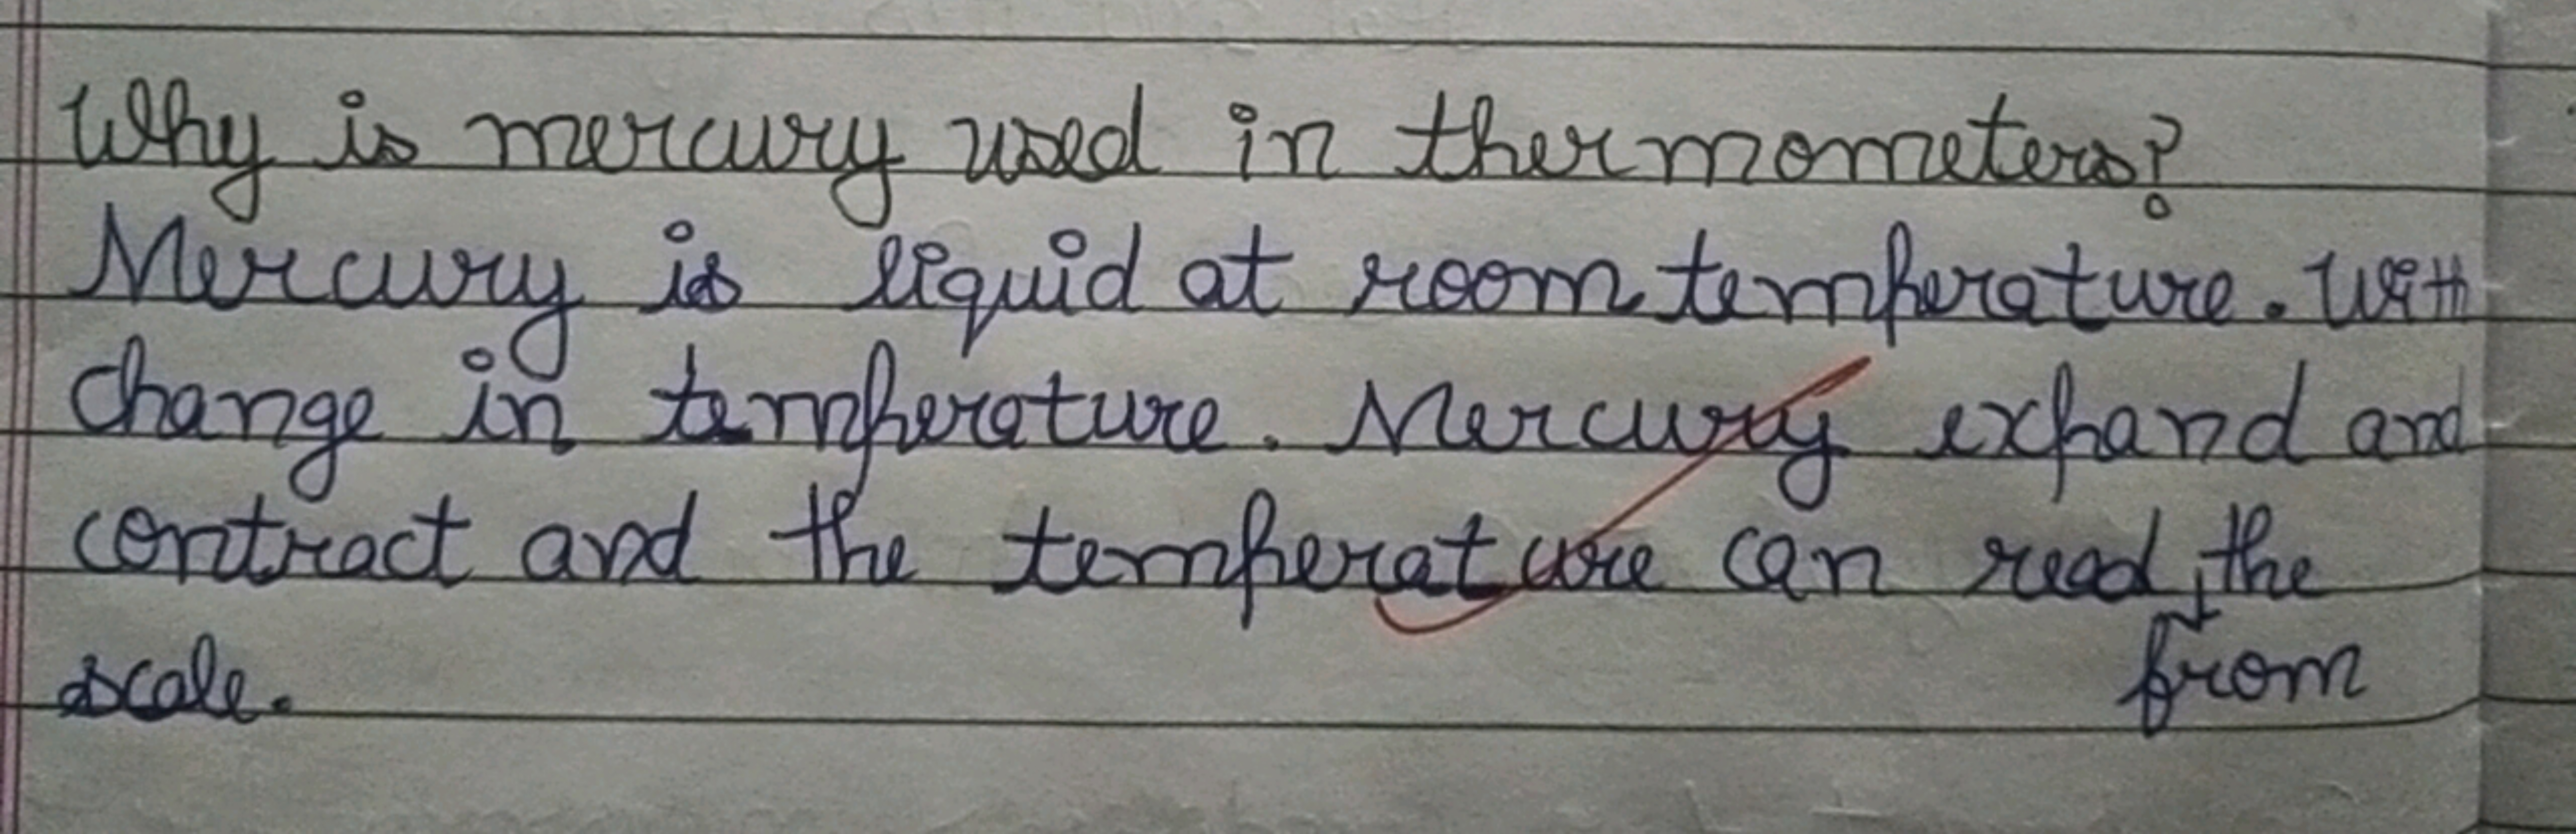 Why is mercury used in thermometers?
Mercury is liquid at room temperature. With
change in temperature. Mercury expand and
contract and the temperature can read the
from
scale.